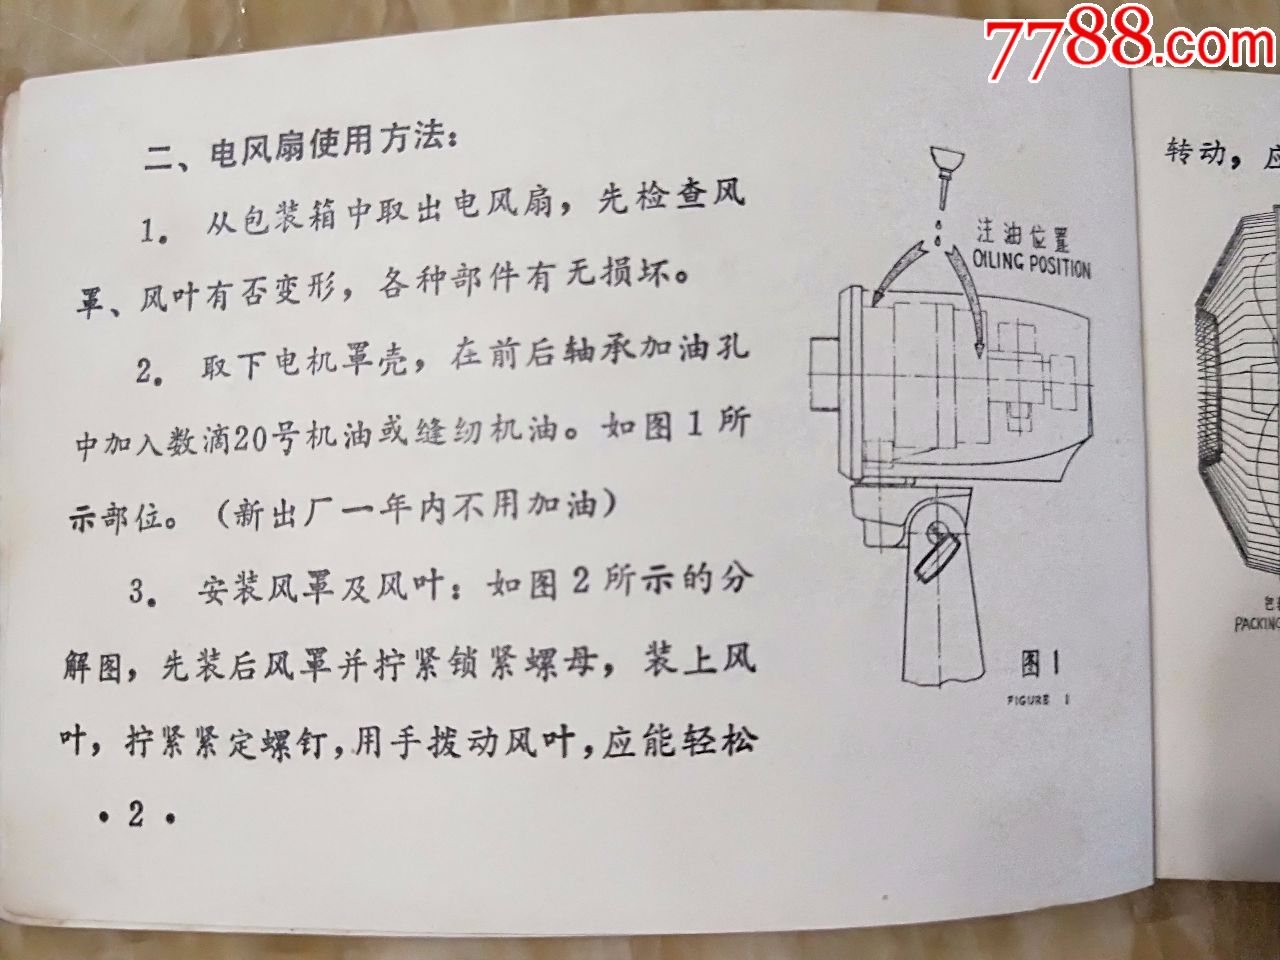 7788.com
二、电风扇使用方法：
1. 从包装箱中取出电风扇，先检查风
罩、风叶有否变形，各种部件有无损坏。
2. 取下电机罩壳，在前后轴承加油孔
中加入数滴20号机油或缝纫机油。如图1所
示部位。（新出厂一年内不用加油）
3. 安装风罩及风叶：如图2所示的分
解图，先装后风罩并拧紧锁紧螺母，装上风
叶，拧紧紧定螺钉，用手拨动风叶，应能轻松
·2·
注油位置
OILING POSITION
图1
FIGURE 1
转动，应
PACKING